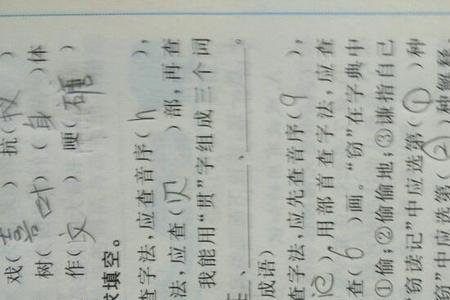 戏(喜) 抗( )
树(叶) (身)体
作(文) 硬(糖)
填空。
查字法,应查音序(h),
法,应查(贝)部,再查
我能用“贯”字组成三个同
、 、 。
成语)
查字法,应先查音序(q),
)用部首查字法,应查
查(6)画。“窃”在字典中
①偷;②偷偷地;③谦指自己
窃读记”中应选第(①)种
窃”中应选第(②)种解释